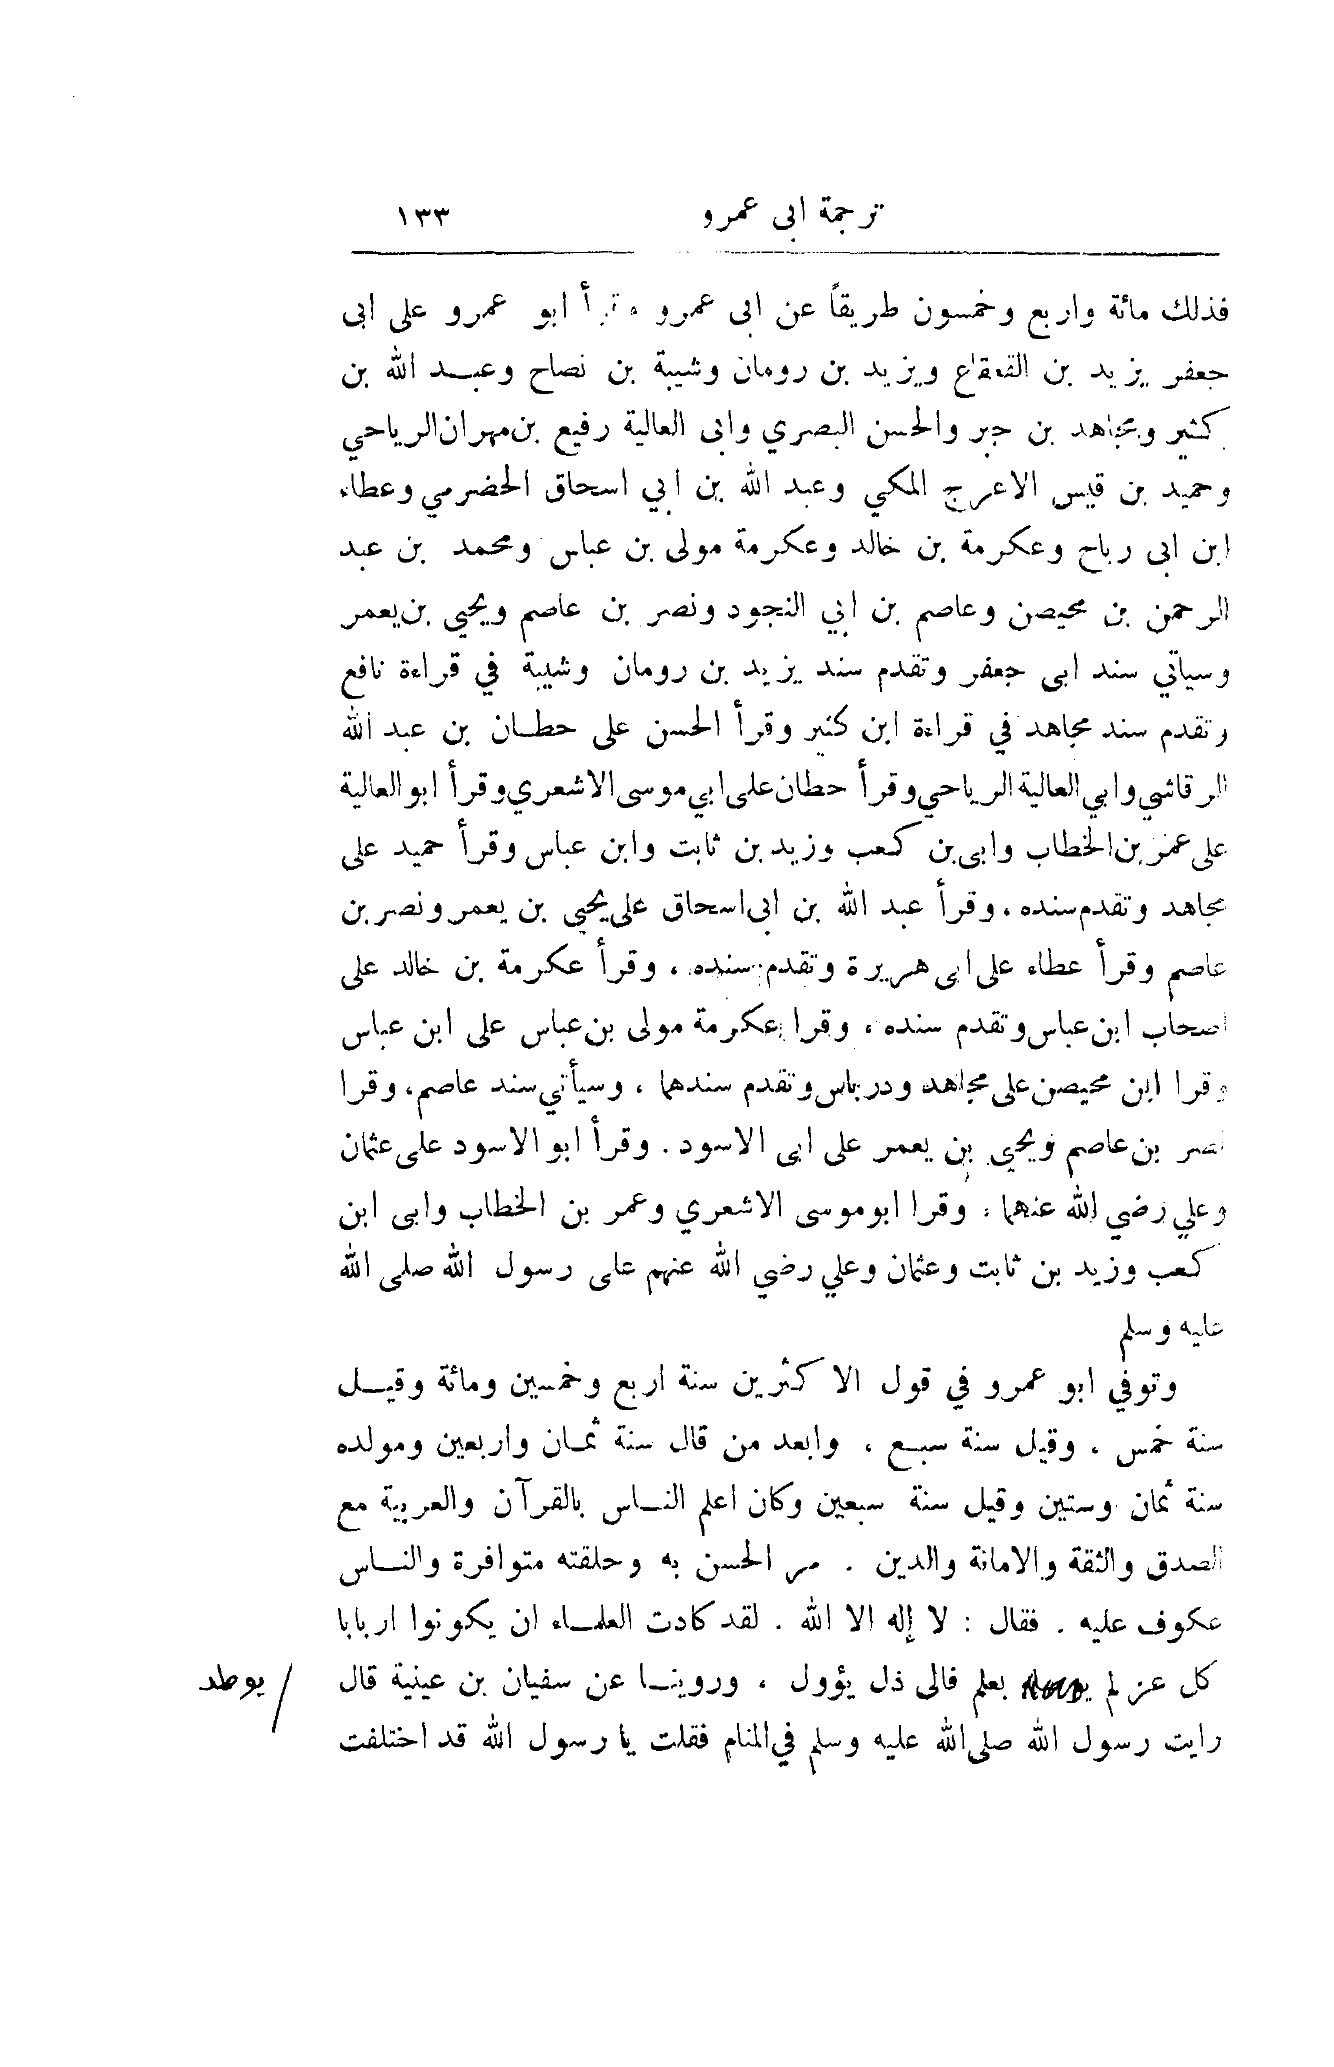 ترجمة ابى عمرو ١٣٣
فذلك مائة واربع وخمسون طريقاً عن ابى عمرو وقرأ ابو عمرو على ابى
جعفر يزيد بن القعقاع ويزيد بن رومان وشيبة بن نصاح وعبد الله بن
كثير ومجاهد بن جبر والحسن البصري وابى العالية رفيع بن مهران الرياحي
وحميد بن قيس الاعرج المكي وعبد الله بن ابي اسحاق الحضرمي وعطاء
ابن ابى رباح وعكرمة بن خالد وعكرمة مولى بن عباس ومحمد بن عبد
الرحمن بن محيصن وعاصم بن ابي النجود ونصر بن عاصم ويحيى بن يعمر
وسياتي سند ابى جعفر وتقدم سند يزيد بن رومان وشيبة في قراءة نافع
وتقدم سند مجاهد في قراءة ابن كثير وقرأ الحسن على حطان بن عبد الله
الرقاشي وابي العالية الرياحي وقرأ حطان على ابي موسى الاشعري وقرأ ابو العالية
على عمر بن الخطاب وابى بن كعب وزيد بن ثابت وابن عباس وقرأ حميد على
مجاهد وتقدم سنده ، وقرأ عبد الله بن ابى اسحاق على يحيى بن يعمر ونصر بن
عاصم وقرأ عطاء على ابى هريرة وتقدم سنده ، وقرأ عكرمة بن خالد على
اصحاب ابن عباس وتقدم سنده ، وقرا عكرمة مولى بن عباس على ابن عباس
وقرا ابن محيصن على مجاهد ودرباس وتقدم سندهما ، وسيأتي سند عاصم ، وقرا
نصر بن عاصم ويحيى بن يعمر على ابى الاسود . وقرأ ابو الاسود على عثمان
وعلي رضي الله عنهما ، وقرا ابو موسى الاشعري وعمر بن الخطاب وابى ابن
كعب وزيد بن ثابت وعثمان وعلي رضي الله عنهم على رسول الله صلى الله
عليه وسلم
وتوفي ابو عمرو في قول الاكثرين سنة اربع وخمسين ومائة وقيل
سنة خمس ، وقيل سنة سبع ، وابعد من قال سنة ثمان واربعين ومولده
سنة ثمان وستين وقيل سنة سبعين وكان اعلم الناس بالقرآن والعربية مع
الصدق والثقة والامانة والدين . مر الحسن به وحلقته متوافرة والناس
عكوف عليه . فقال : لا إله الا الله . لقد كادت العلماء ان يكونوا اربابا
كل عز لم بعلم فالى ذل يؤول ، وروينا عن سفيان بن عينية قال / يوطد
رايت رسول الله صلى الله عليه وسلم في المنام فقلت يا رسول الله قد اختلفت